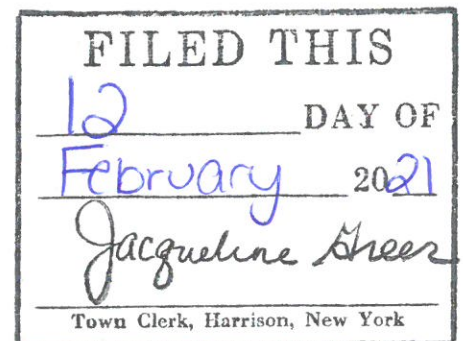 FILED THIS
12 DAY OF
February 2021
Jacqueline Greer
Town Clerk, Harrison, New York